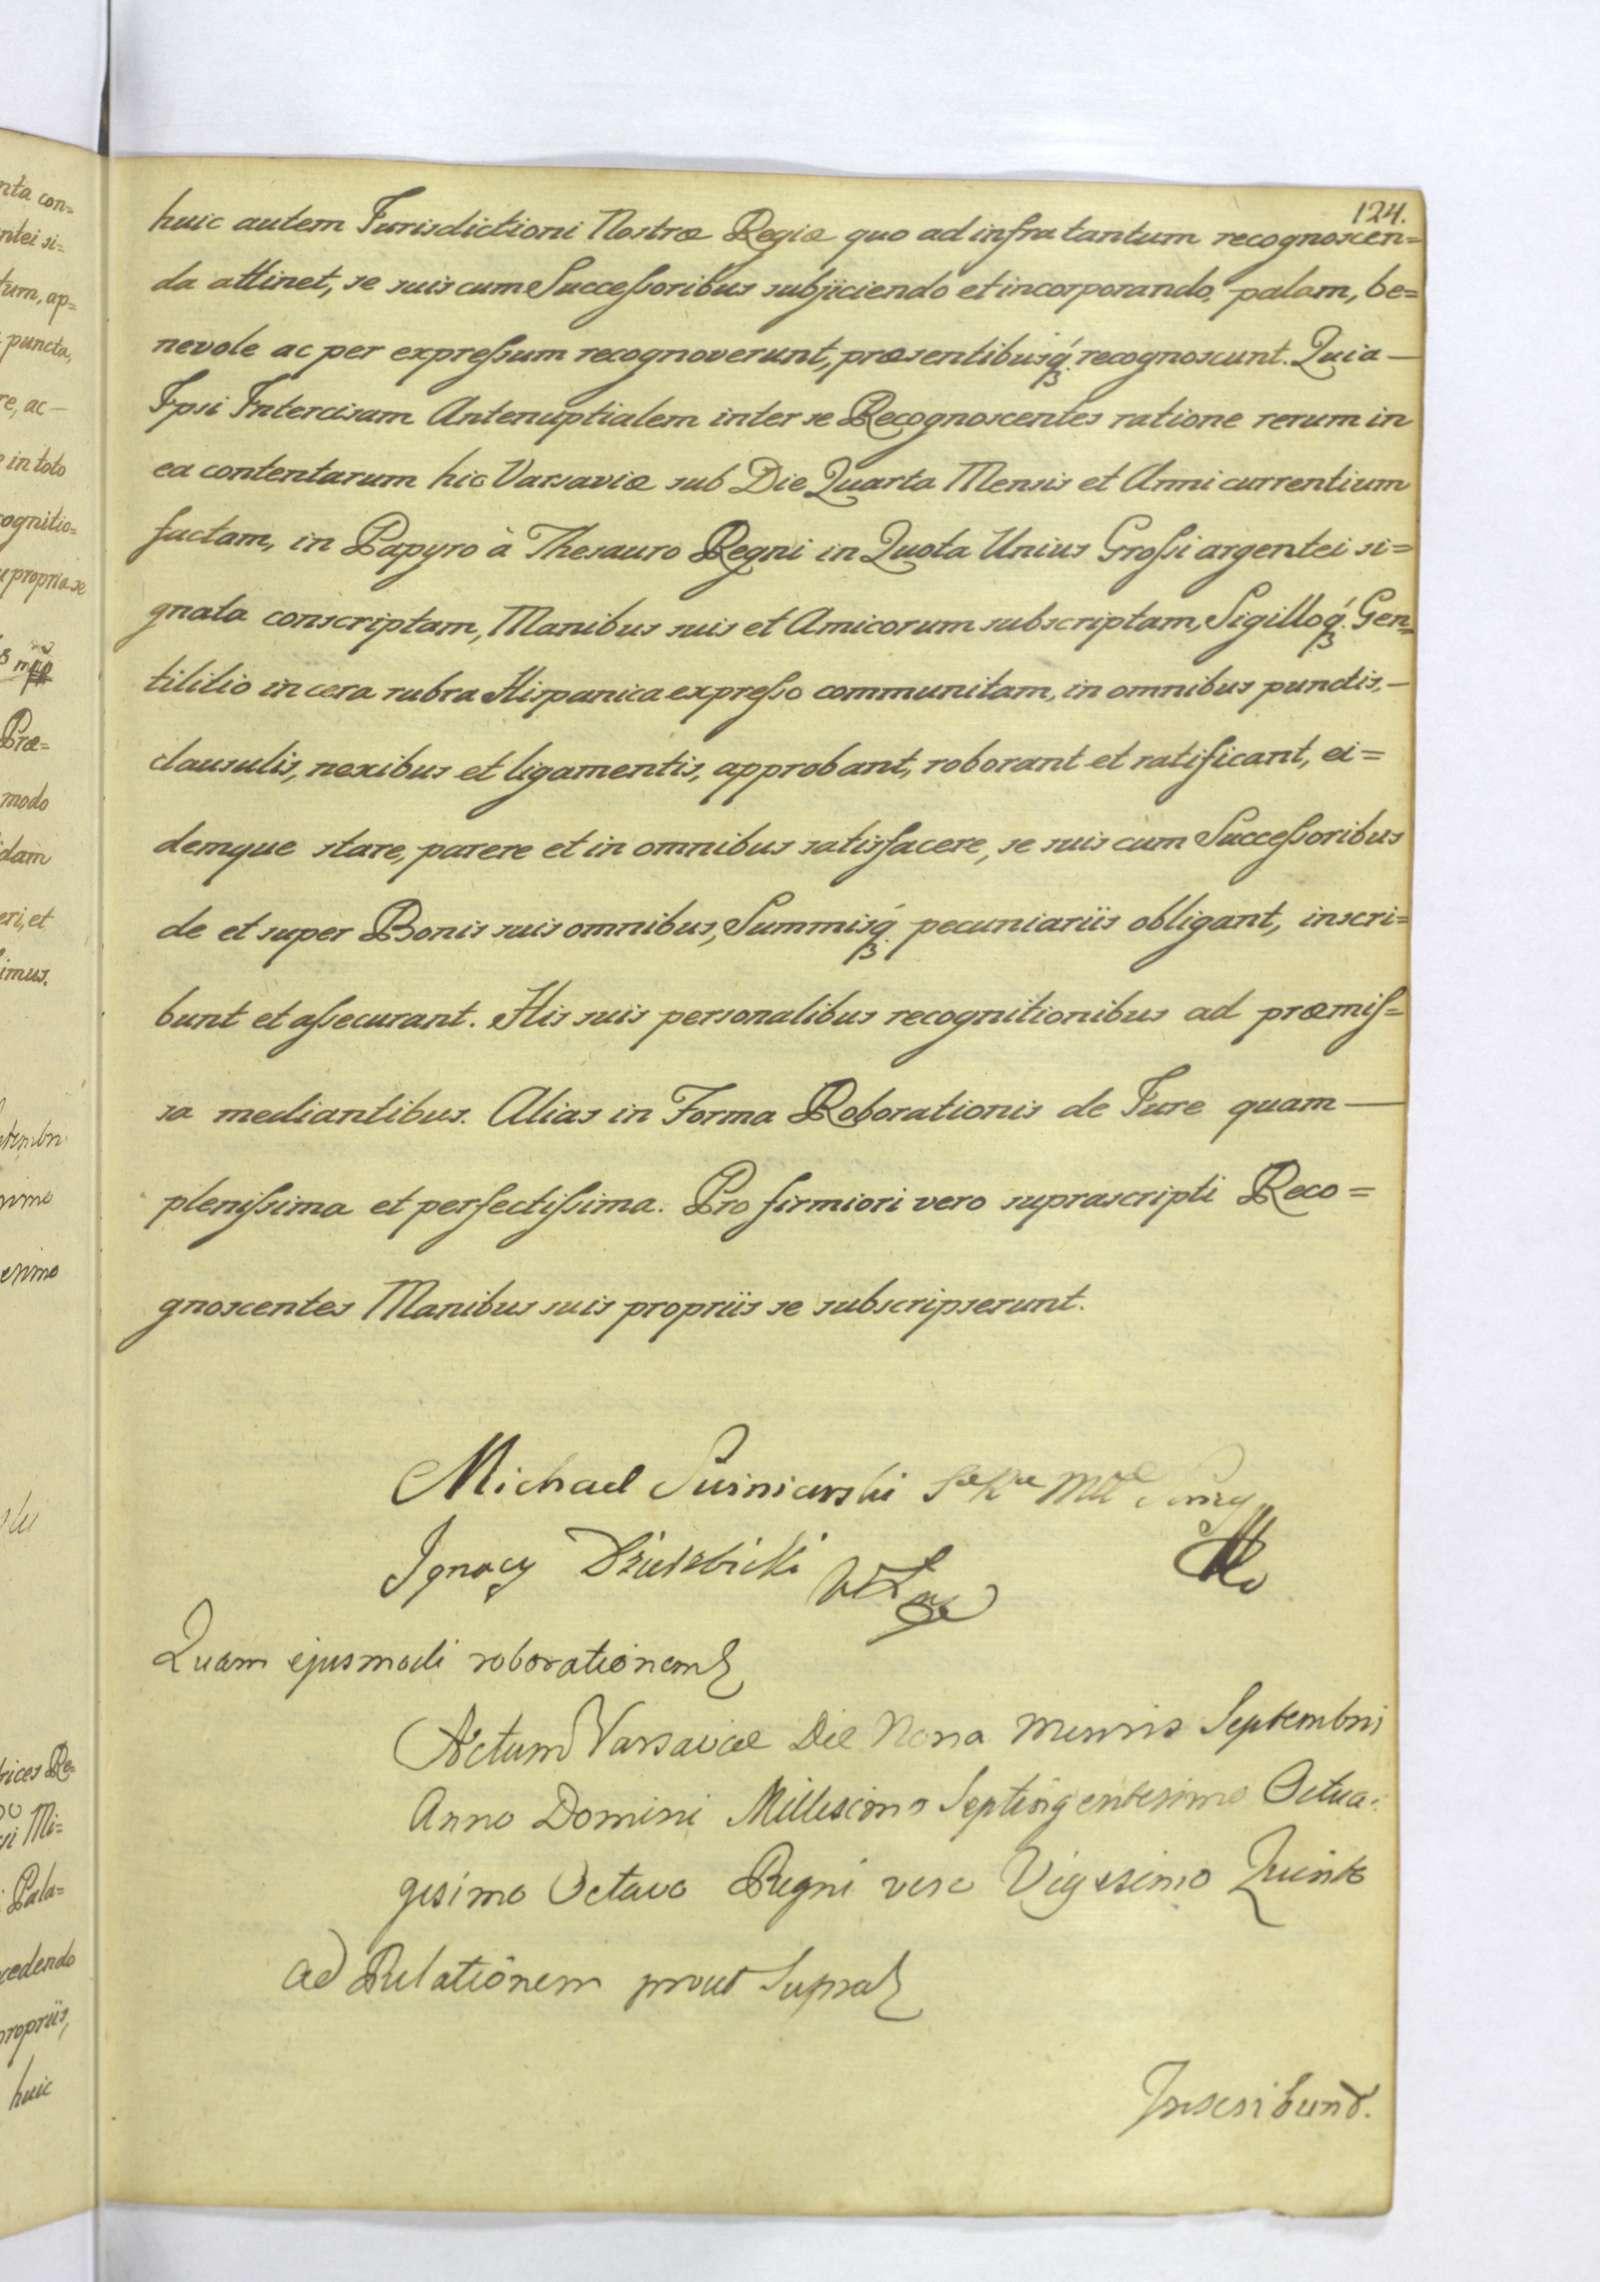 124.
huic autem Jurisdictioni Nostræ Regiæ quo ad infra tantum recognoscen=
da attinet, se suis cum Successoribus subjiciendo et incorporando, palam, be=
nevole ac per expressum recognoverunt, præsentibusq́ʒ. recognoscunt. Quia —
Ipsi Intercisam Antenuptialem inter se Recognoscentes ratione rerum in
ea contentarum hic Varsaviæ sub Die Quarta Mensis et Anni currentium
factam, in Papyro à Thesauro Regni in Quota Unius Grossi argentei si=
gnata conscriptam, Manibus suis et Amicorum subscriptam, Sigilloq́ʒ. Gen=
tilitio in cera rubra Hispanica expresso communitam, in omnibus punctis, —
clausulis, nexibus et ligamentis, approbant, roborant et ratificant, ei=
demque stare, parere et in omnibus satisfacere, se suis cum Successoribus
de et super Bonis suis omnibus, Summisq́ʒ. pecuniariis obligant, inscri=
bunt et assecurant. His suis personalibus recognitionibus ad præmis=
sa mediantibus. Alias in Forma Roborationis de Jure quam —
plenissima et perfectissima. Pro firmiori vero suprascripti Reco=
gnoscentes Manibus suis propriis se subscripserunt.
Michael
Ignacy
Quam ejusmodi roborationem
Actum Varsaviæ Die Nona Mensis Septembris
Anno Domini Millesimo Septingentesimo Octua=
gesimo Octavo Regni vero Vigesimo Quinto
ad Relationem prout Supra
Inscribunt.